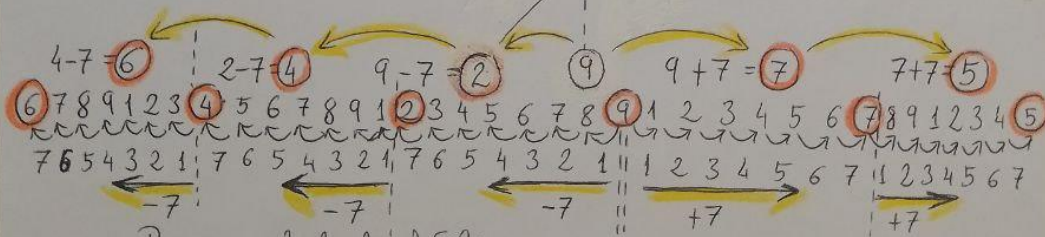 4-7=6 2-7=4 9-7=2 9 9+7=7 7+7=5
6 7 8 9 1 2 3 4 5 6 7 8 9 1 2 3 4 5 6 7 8 9 1 2 3 4 5 6 7 8 9 1 2 3 4 5
7 6 5 4 3 2 1 7 6 5 4 3 2 1 7 6 5 4 3 2 1 1 2 3 4 5 6 7 1 2 3 4 5 6 7
-7 -7 -7 +7 +7